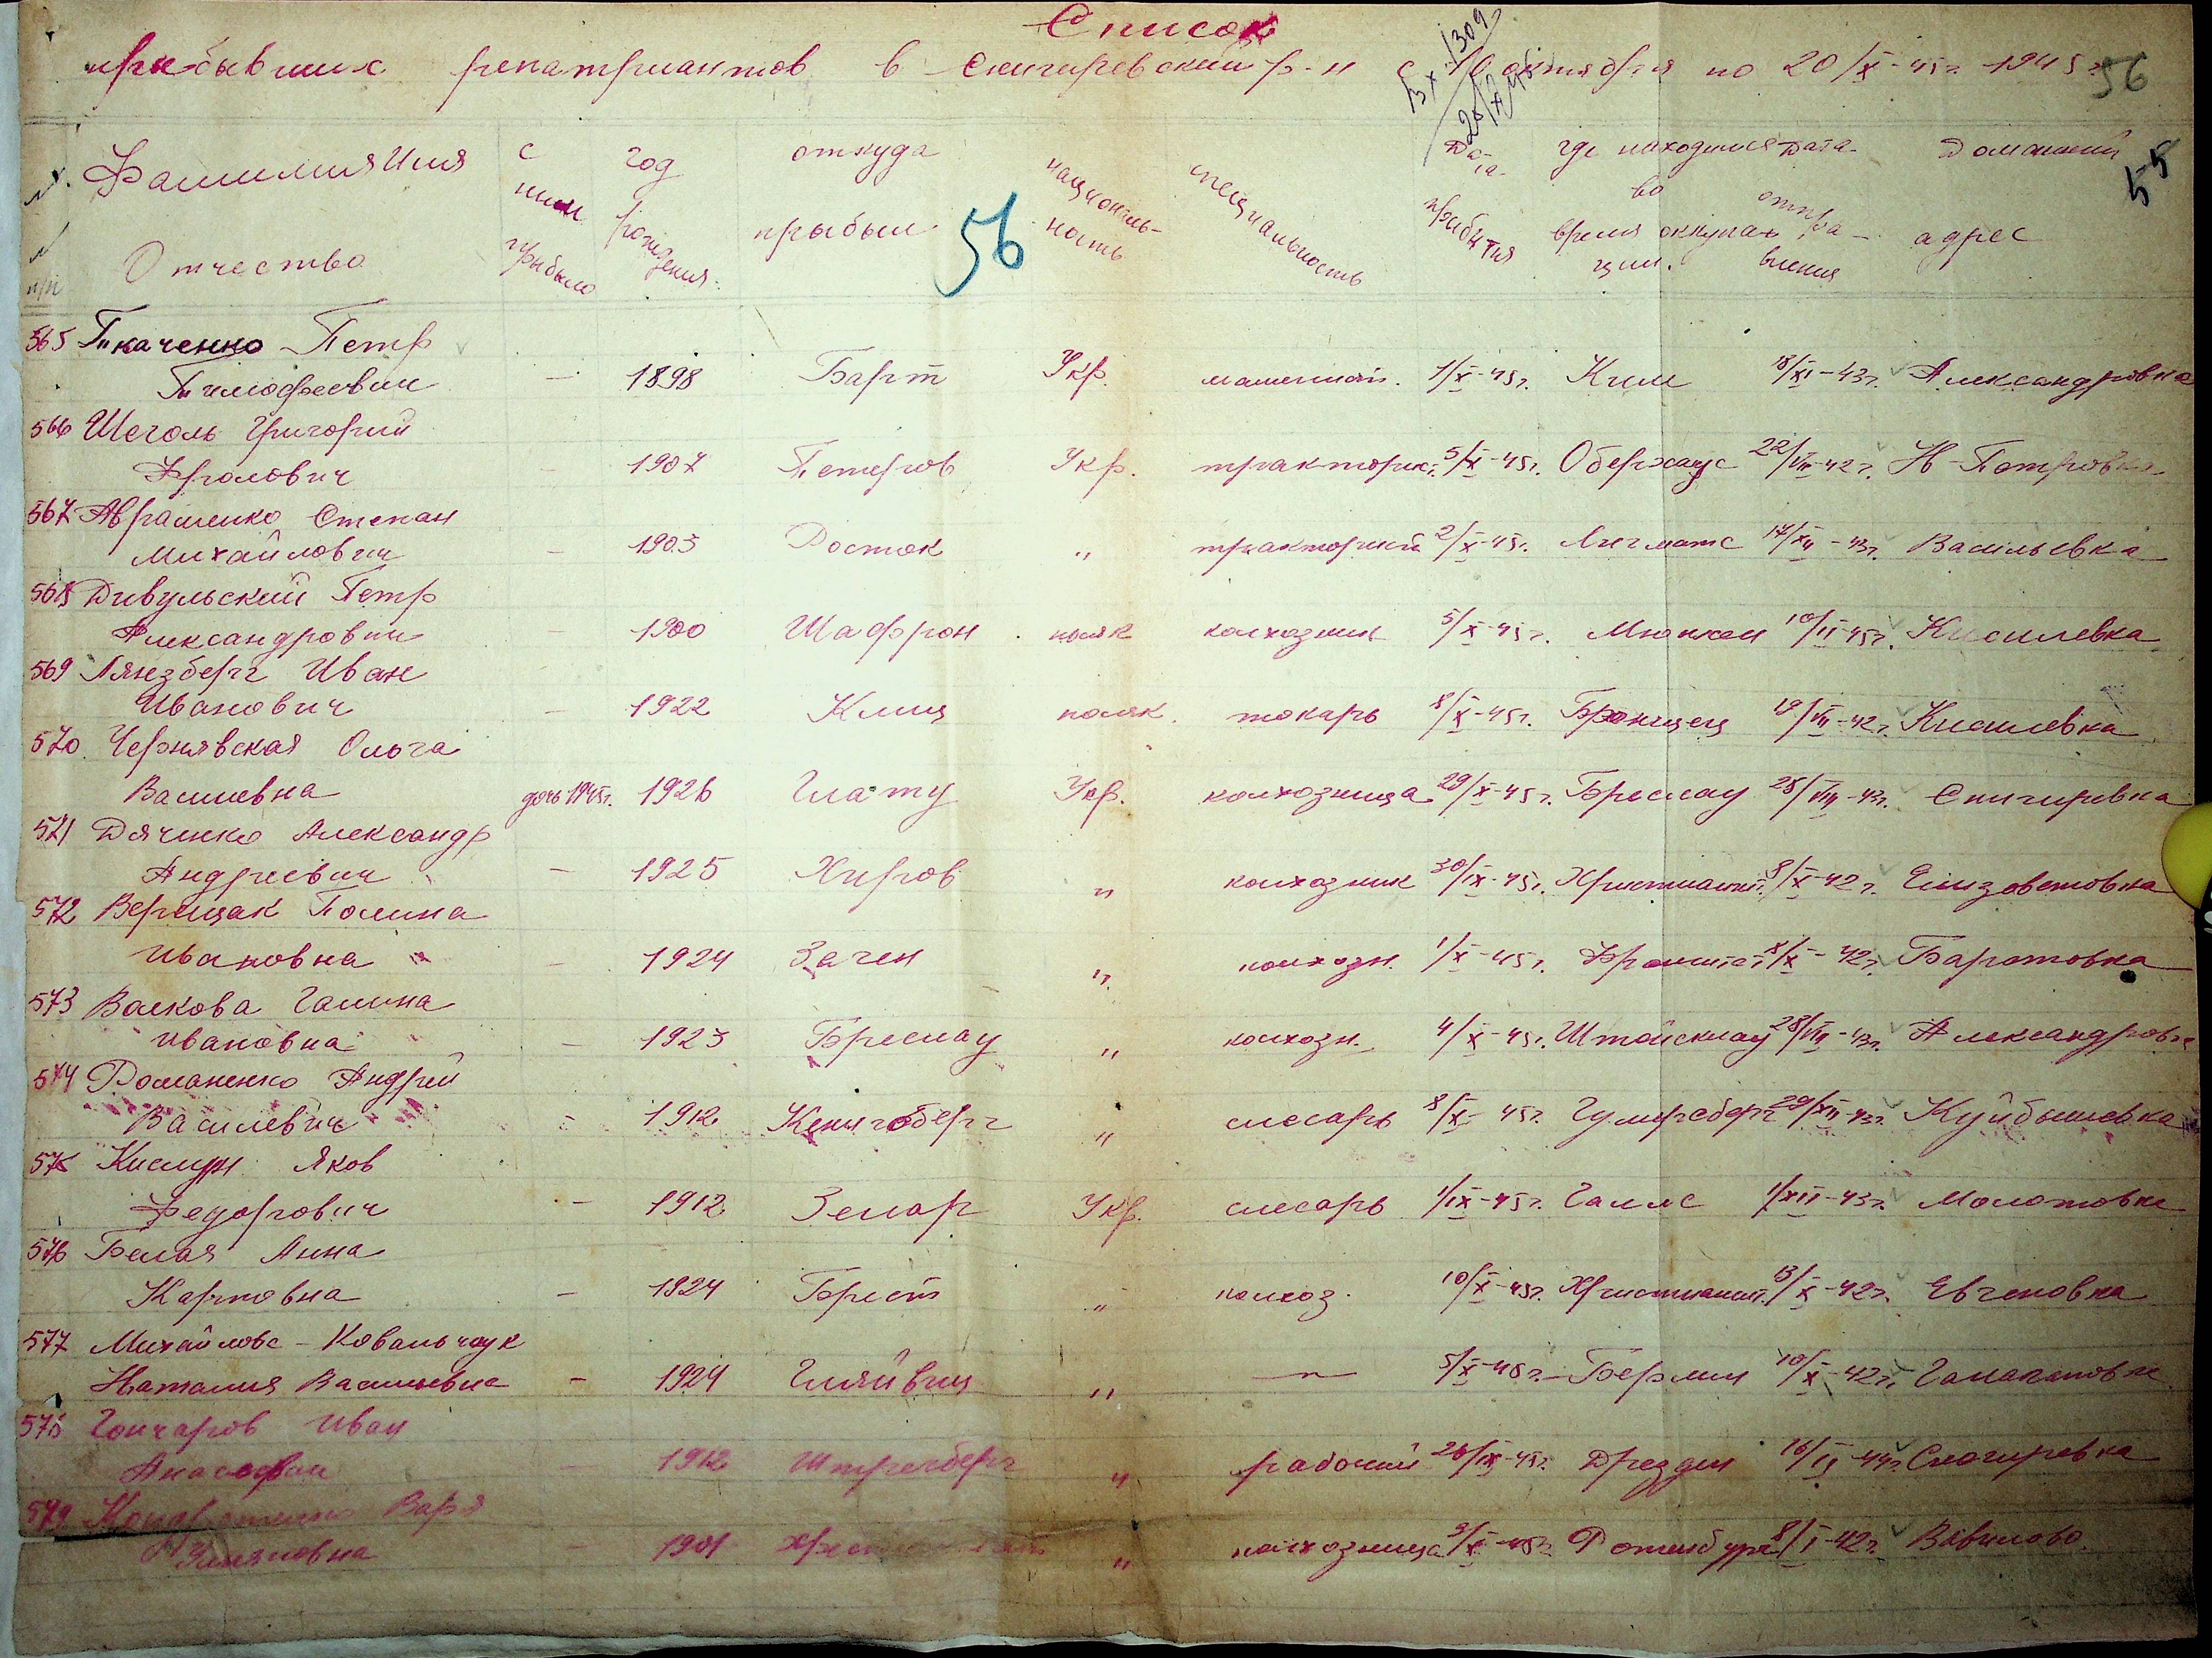 Список
прибывших репатриантов в Снигиревский р-н с 10 октября по 20/X-45г. 1945 г.
Вх 1309
56
55
56
№ п/п Фамилия Имя Отчество с ним прибыло год рождения откуда прибыл национальность специальность Дата прибытия где находился во время оккупации Дата отправления Домашний адрес
565 Ткаченко Петр
Тимофеевич — 1898 Барт Укр. 1/X-45г. Ким 18/XI-43г. Александровка
566 Щеголь Григорий
Фролович — 1907 Петергов Укр. тракторис. 5/X-45г. Оберхаус 22/VIII-42г. Н-Петровка
567 Авраменко Степан
Михайлович — 1903 Росток " 2/X-45г. 17/XII-43г. Васильевка
568 Дивульский Петр
Александрович — 1900 Шафрон поляк колхозник 5/X-45г. Мюнхен 10/II-45г. Киселевка
569 Лянзберг Иван
Иванович — 1922 Клиц поляк токарь 8/X-45г. 19/VII-42г. Киселевка
570 Чернявская Ольга
Василевна дочь 1945г. 1926 Глату Укр. колхозница 29/X-45г. Бреслау 28/VIII-43г. Снигиревка
571 Дяченко Александр
Андреевич — 1925 Хиров " колхозник 30/IX-45г. 8/X-42г. Елизаветовка
572 Верещак Полина
Ивановна — 1924 Заген " колхозн. 1/X-45г. 8/X-42г. Баратовка
573 Волкова Галина
Ивановна — 1923 Бреслау " колхозн. 4/X-45г. 28/VIII-43г. Александровк
574 Романенко Андрей
Василевич — 1912 Кенигсберг " слесарь 8/X-45г. 20/XII-43г. Куйбышевка
575 Яков
Федорович — 1912 Земар Укр. слесарь 1/IX-45г. Галле 1/XII-43г. Молотовка
576 Белая Анна
Карповна — 1924 Брест " колхоз. 10/X-45г. 13/X-42г. Евгеновка
577 Михайлова-Ковальчук
Наталия Васильевна — 1924 Гляйвиц " —"— 5/X-45г. Берлин 10/X-42г. Галагановка
578 Гончаров Иван
— 1912 " рабочий 26/IX-45г. Дрезден 16/II-44г. Снегиревка
579 Варя
— 1901 " колхозница 9/X-45г. Ротенбург 8/I-42г. Вавилово.